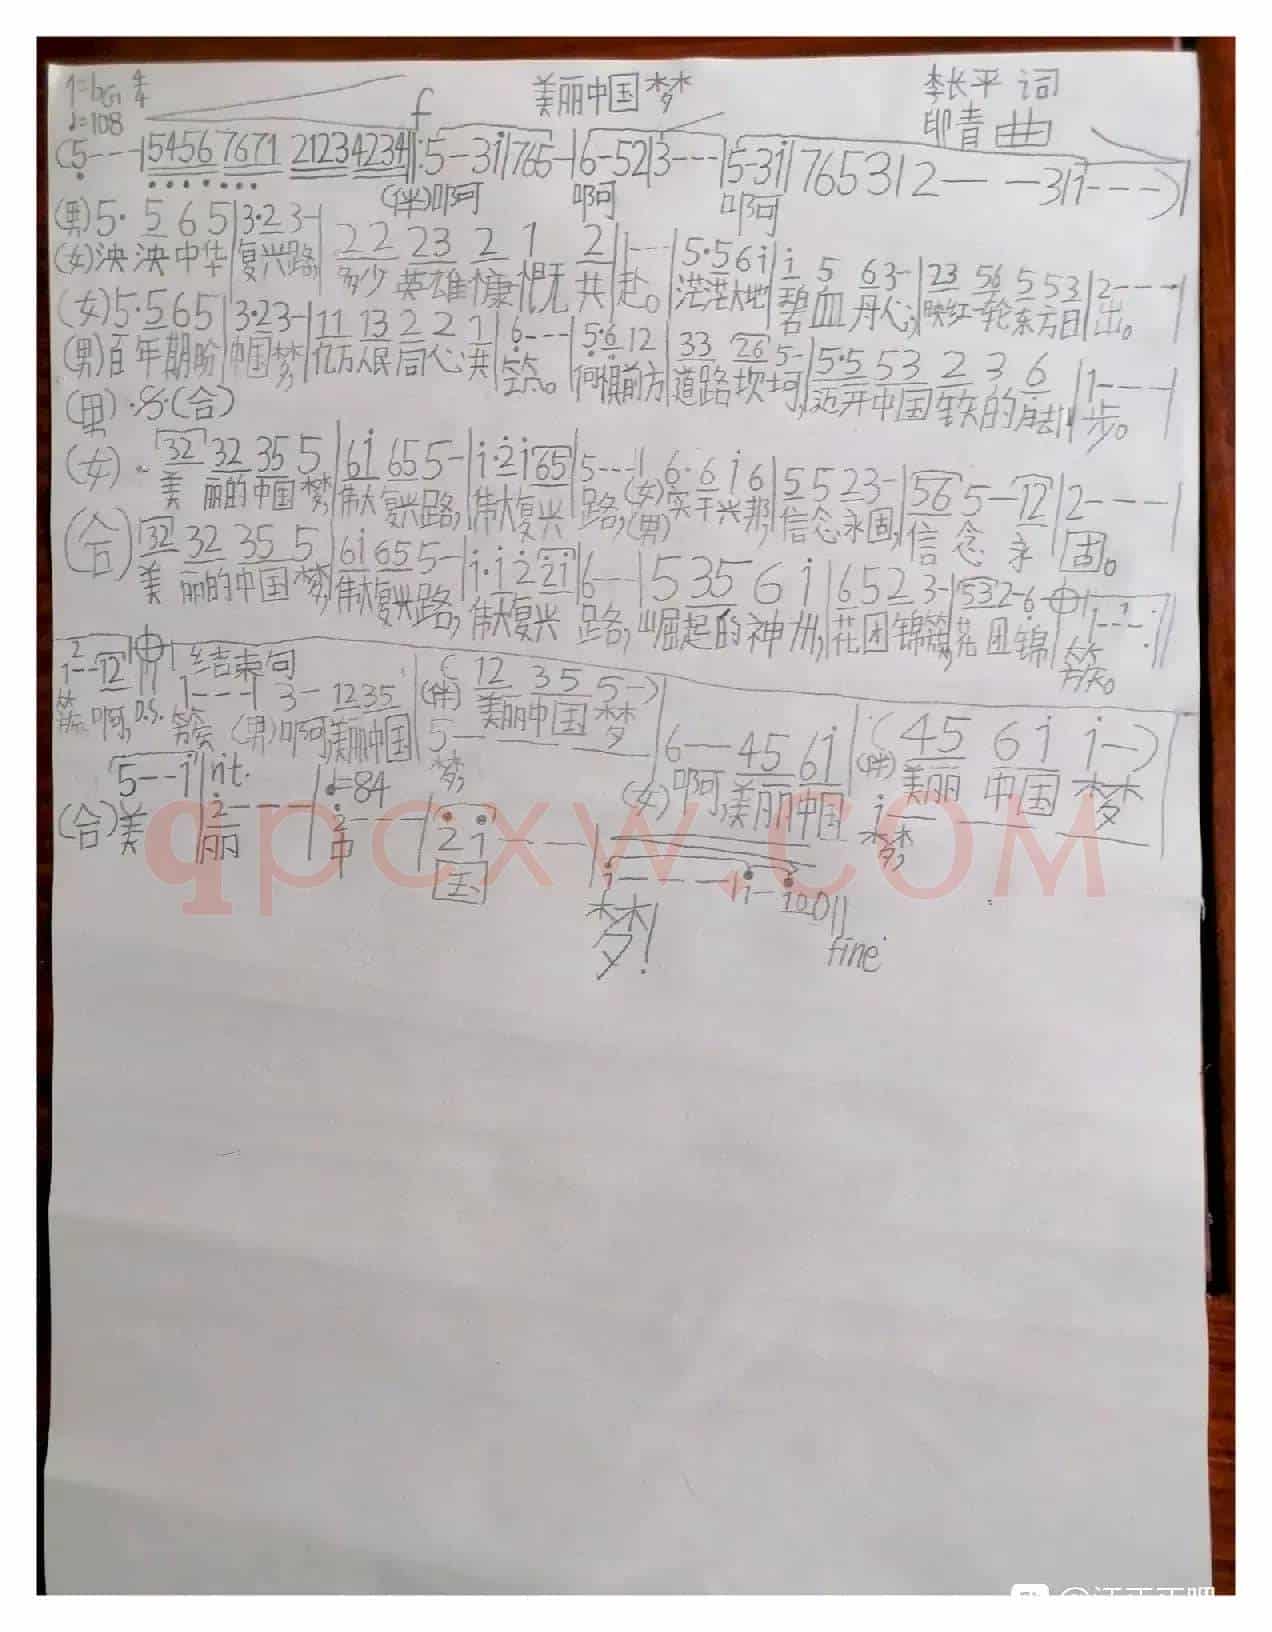 1=bG 4/4 美丽中国梦 李长平 词
♩=108 f 印青 曲
(5---|5456 7671 2123 4234‖:5-3i|765-|6-52|3---|5-3i|7653|2---3|1---)|
(伴)啊 啊 啊
(男)5·5 6 5|3·2 3-|22 23 2 1 2|1---|5·56i|i 5 63-|23 56 5 53|2---|
(女)泱泱中华复兴路,多少英雄慷慨共赴。茫茫大地碧血丹心,映红一轮东方日出。
(女)5·565|3·23-|11 13 2 2 1|6---|5·6 12|33 26 5-|5·5 53 2 3 6|1---|
(男)百年期盼中国梦,亿万人民同心共筑。何惧前方道路坎坷,迈开中国铁的脚步。
(男)·S·(合)
(女) 32 32 35 5|6i 65 5-|i·2i65|5---|6·6i6|5523-|56 5-12|2---|
美丽的中国梦,伟大复兴路,伟大复兴路,(女)(男)实干兴邦,信念永固,信念永固。
(合)32 32 35 5|6i 65 5-|i·i 2 2i|6---|5 35 6 i|6523-|532-6|1---:‖
美丽的中国梦,伟大复兴路,伟大复兴路,崛起的神州,花团锦簇,花团锦簇。
2 1--12| 结束句
簇啊,D.S. 1---|3-1235|(12 35 5-)
簇 (男)啊,美丽中国 (伴)美丽中国梦
5--- 6--45 6i|(45 6i i-)
梦, (女)啊,美丽中国 (伴)美丽中国梦
5--i|rit. ♩=84 i---
(合)美 2---|2---|2i---| 梦,
丽 中 国 i---|i-i00‖
梦! fine
qpcxw.COM